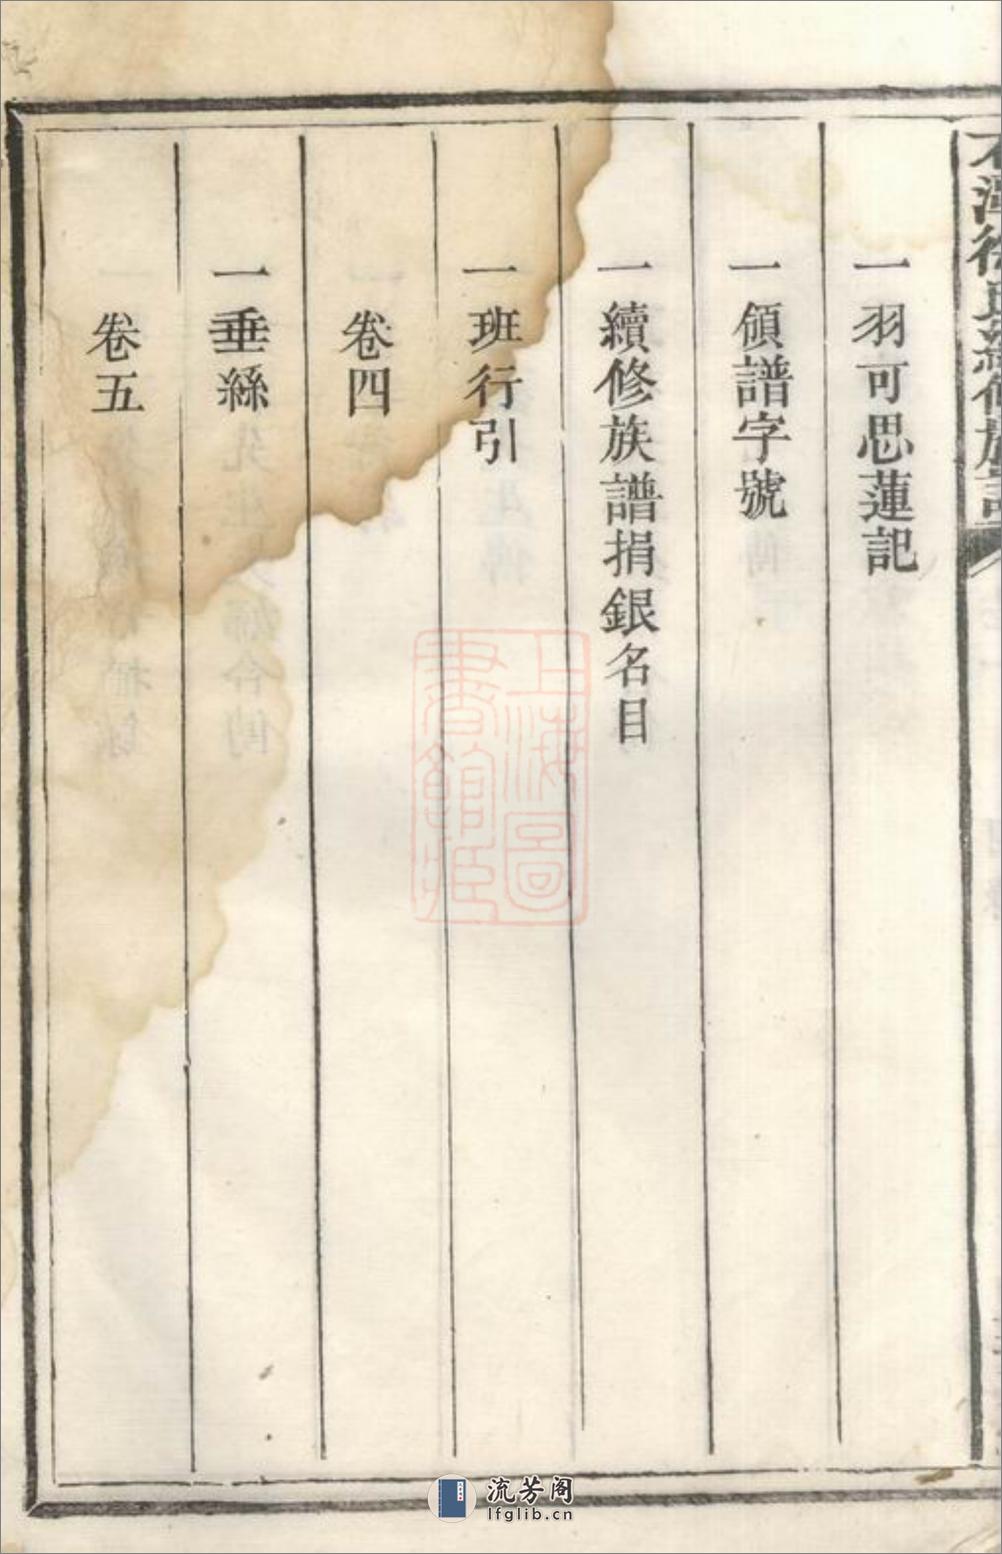 一羽可思蓮記
一領譜字號
一續修族譜捐銀名目
一班行引
卷四
一垂絲
卷五
上海圖書館藏
流芳阁
lfglib.cn